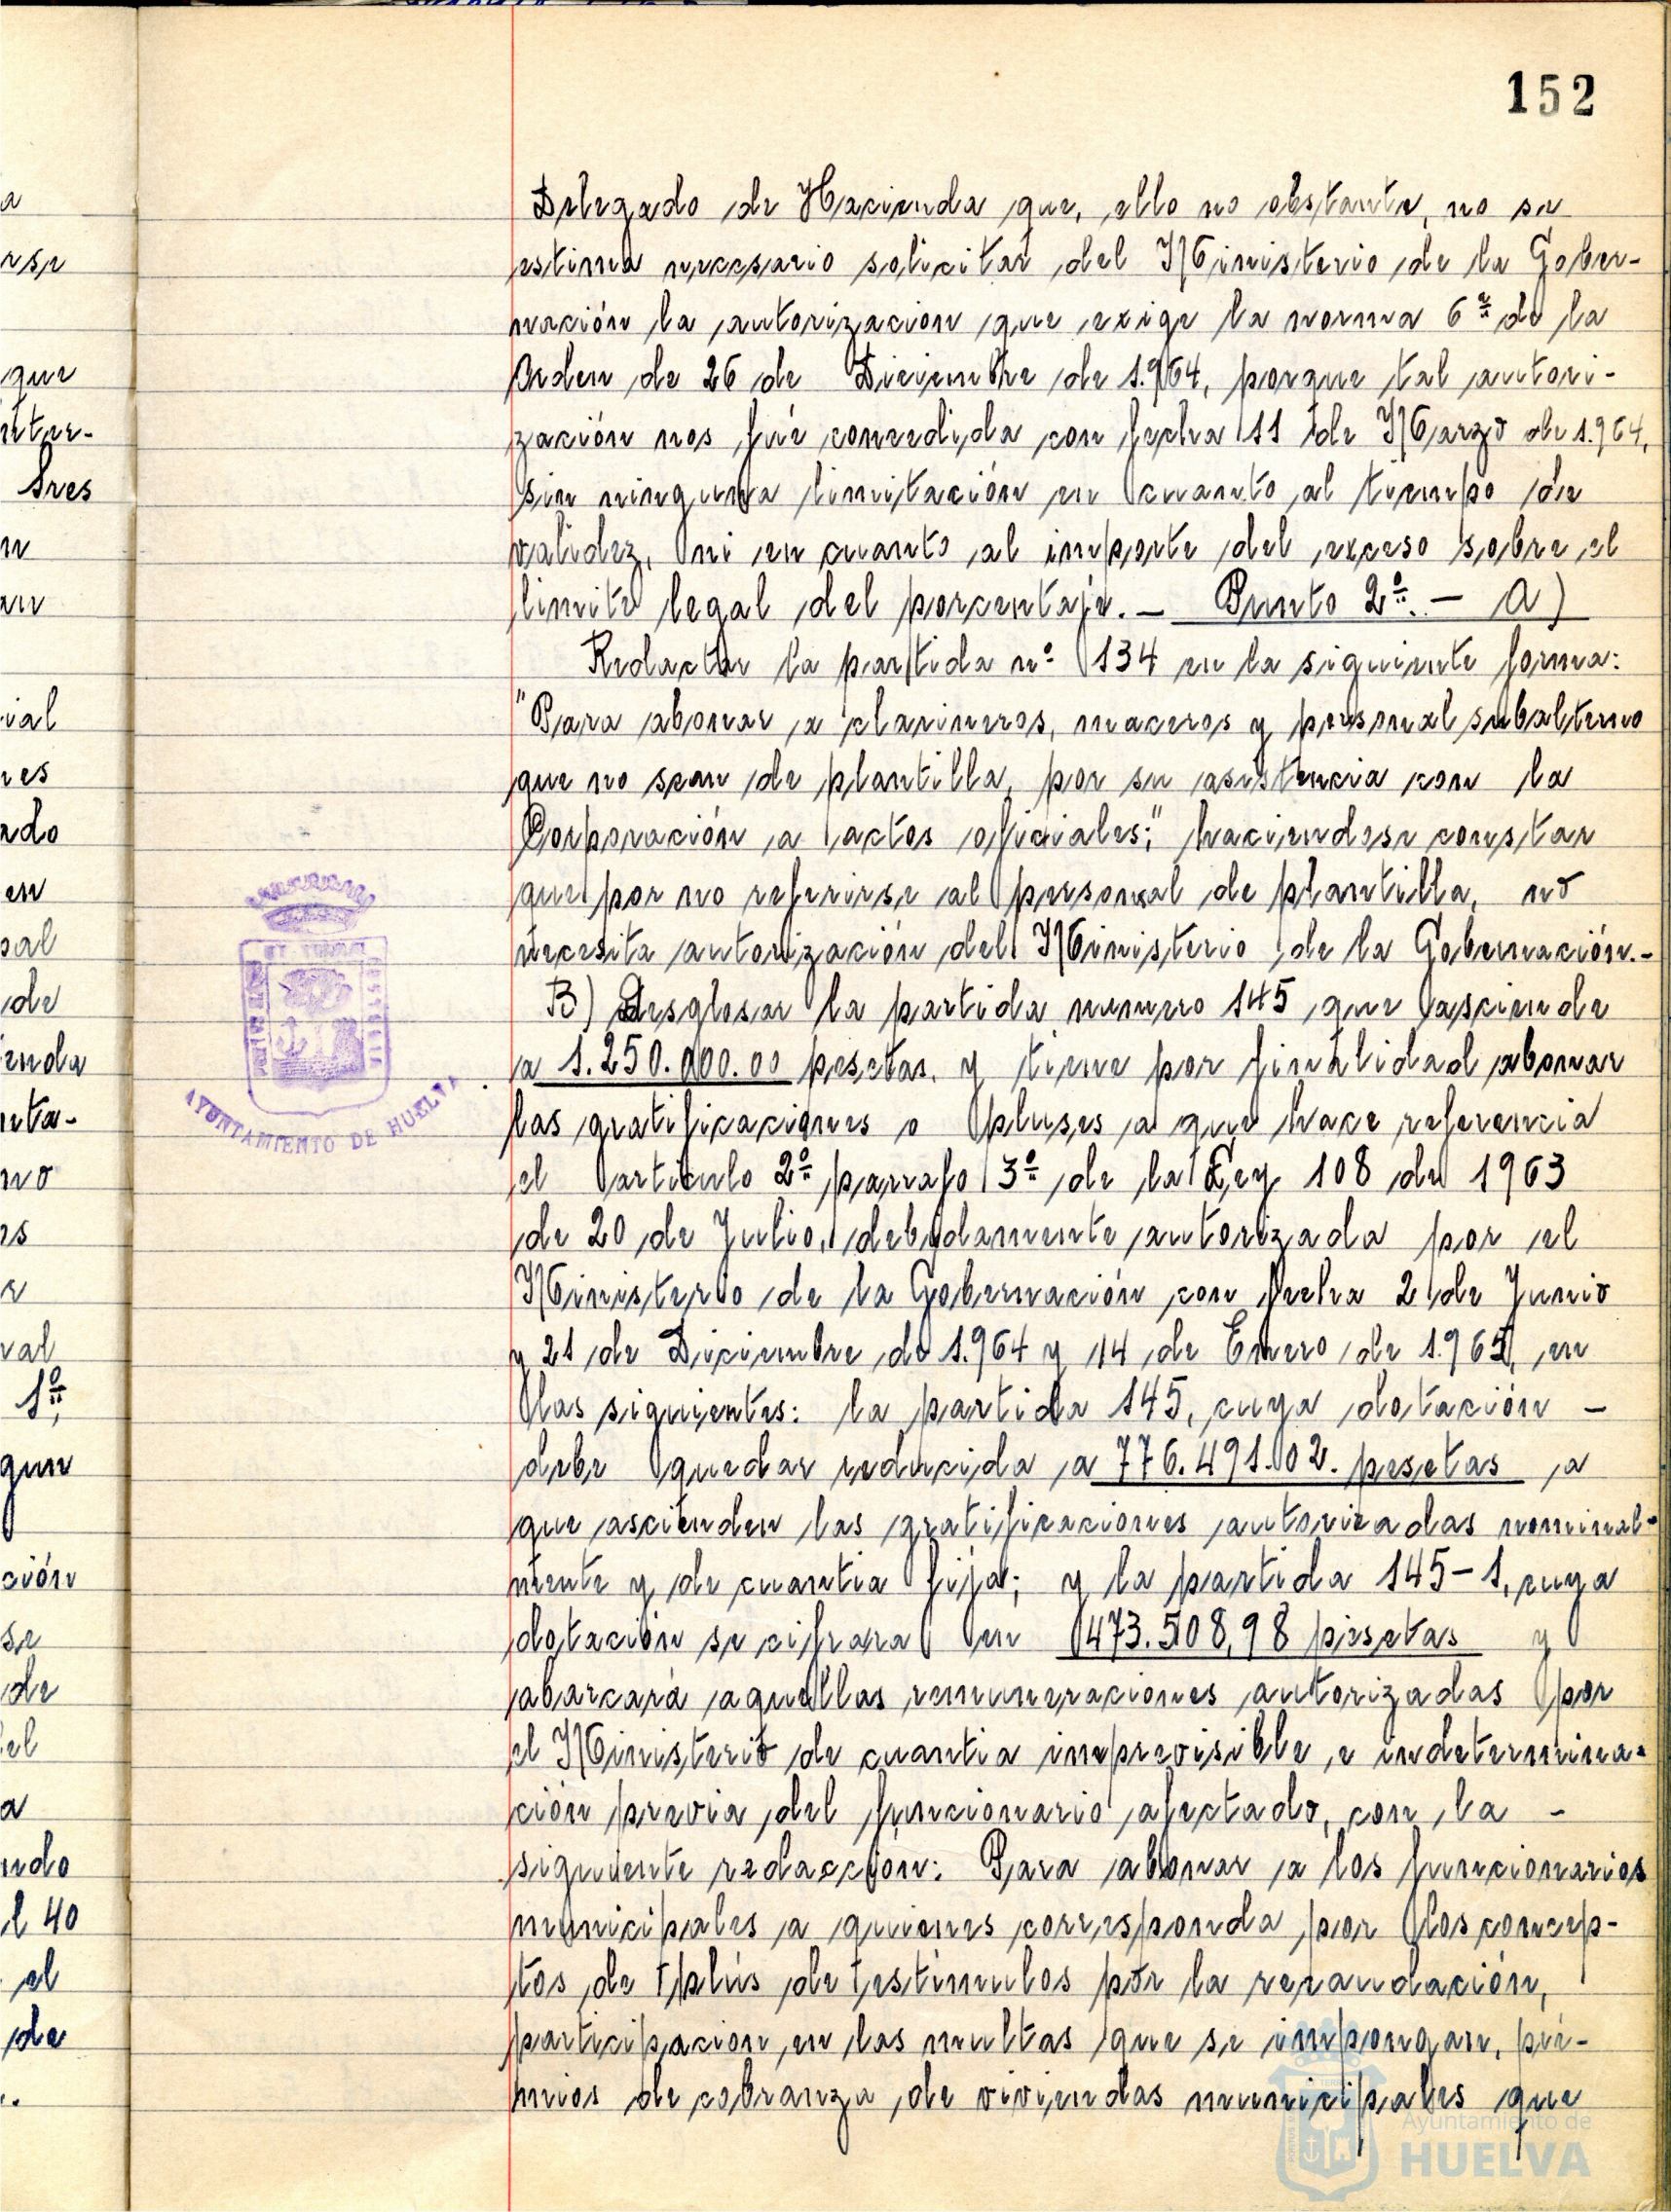 152
Delegado de Hacienda que, ello no obstante, no se
estima necesario solicitar del Ministerio de la Gober-
nación la autorización que exige la norma 6ª de la
Orden de 26 de Diciembre de 1.964, porque tal autori-
zación nos fué concedida con fecha 11 de Marzo de 1.964,
sin ninguna limitación en cuanto al tiempo de
validez, ni en cuanto al importe del exceso sobre el
limite legal del porcentaje. — Punto 2º. — A)
Redactar la partida nº 134 en la siguiente forma:
"Para abonar a clarineros, maceros y personal subalterno
que no sean de plantilla, por su asistencia con la
Corporación a actos oficiales;" haciendose constar
que por no referirse al personal de plantilla, no
necesita autorización del Ministerio de la Gobernación.-
B) Desglosar la partida numero 145 que asciende
a 1.250.000.00 pesetas. y tiene por finalidad abonar
las gratificaciones o pluses a que hace referencia
el articulo 2º parrafo 3º de la Ley 108 de 1963
de 20 de Julio, debidamente autorizada por el
Ministerio de la Gobernación con fecha 2 de Junio
y 21 de Diciembre de 1.964 y 14 de Enero de 1.965, en
las siguientes: la partida 145, cuya dotación -
debe quedar reducida a 776.491.02. pesetas a
que ascienden las gratificaciones autorizadas nominal-
mente y de cuantia fija; y la partida 145-1, cuya
dotación se cifrara en 473.508,98 pesetas y
abarcará aquellas remuneraciones autorizadas por
el Ministerio de cuantia imprevisible e indetermina-
ción previa del funcionario afectado, con la -
siguiente redacción: Para abonar a los funcionarios
municipales a quienes corresponda por los concep-
tos de plús de estimulos por la recaudación,
participación en las multas que se impongan, pre-
mios de cobranza de viviendas municipales que
AYUNTAMIENTO DE HUELVA
a
rse
que
nter-
tres
an
ial
res
ado
en
de
enda
nta-
no
val
1º,
que
ción
se
de
el
a
ndo
l 40
el
de
Ayuntamiento de
HUELVA